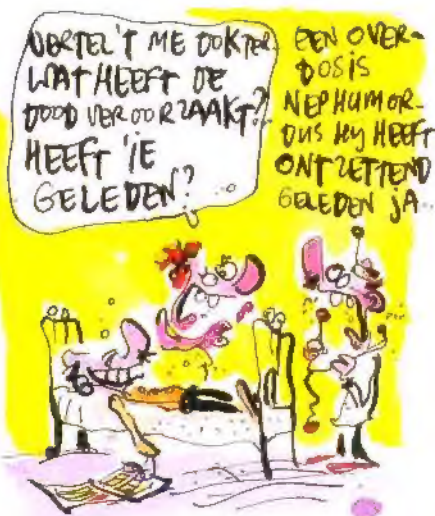 VERTEL'T ME DOKTER
WAT HEEFT DE
DOOD VEROORZAAKT?
HEEFT 'IE
GELEDEN?
EEN OVER-
DOSIS
NEPHUMOR-
DUS HIJ HEEFT
ONTZETTEND
GELEDEN JA..